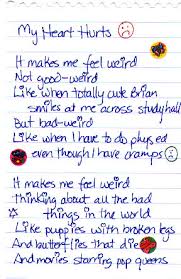 My Heart Hurts
It makes me feel weird
Not good-weird
Like when totally cute Brian
smiles at me across study hall
But bad-weird
Like when I have to do phys ed
even though I have cramps
It makes me feel weird
Thinking about all the bad
things in the world
Like puppies with broken legs
And butterflies that die
And movies starring pop queens